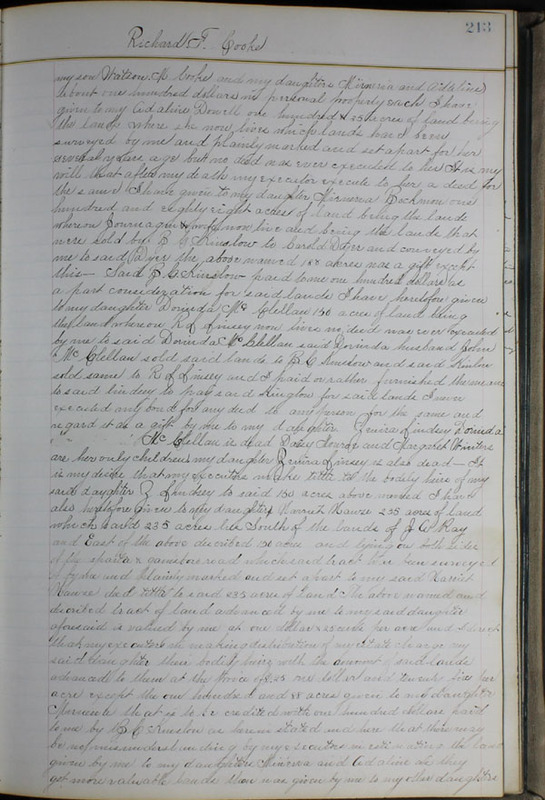 213
Richard T. Cooke
my son Watson M Cooke and my daughters Minerva and Adaline
about one hundred dollars in personal property each I have
given to my Adaline Dowell one hundred & 25 acres of land being
the lands where she now lives which lands have been
surveyed by me and plainly marked and set apart for her
several years ago but no deed was ever executed to her It is my
will that after my death my executor execute to her a deed for
the same I have given to my daughter Minerva one
hundred and eighty eight acres of land being the lands
whereon now live and being the lands that
were sold by B C Kinslow to and conveyed by
me to said the above named 188 acres was a gift except
this — Said B C Kinslow paid to me one hundred dollars as
a part consideration for said lands I have heretofore given
to my daughter Dorinda Mc Clellan 150 acres of land being
the land whereon R J Linsey now lives no deed was ever executed
by me to said Dorinda McClellan said Dorinda husband John
Mc Clellan sold said lands to B C Kinslow and said Kinslow
sold same to R J Linsey and I paid or rather furnished the means
to said Lindsey to pay said Kinslow for said lands I never
executed any bond for any deed to any person for the same and
regard it as a gift by me to my daughter Lindsey Dorinda
Mc Clellan is dead and Margaret Winters
are her only children my daughter Linsey is also dead — It
is my desire that my executors make title to the bodily heirs of my
said daughter Lindsey to said 150 acres above named I have
also heretofore given to my daughter Harriet 235 acres of land
which said 235 acres lie South of the lands of J W Ray
and East of the above described 150 acres and lying on both sides
of the road which said tract has been surveyed
by me and plainly marked and set apart to my said Harriet
deed to said 235 acres of land The above named and
described tract of land advanced by me to my said daughters
aforesaid is valued by me at one dollar & 25 cents per acre and I direct
that my executors in making distribution of my estate charge my
said daughters their bodily heirs with the amount of said lands
advanced to them at the price of $1.25 one dollar and twenty five per
acre except the one hundred and 88 acres given to my daughter
that is to be credited with one hundred dollars paid
to me by B C Kinslow as herein stated and here that there may
be no misunderstanding by my executors in estimating the land
given by me to my daughters Minerva and Adaline as they
got more valuable lands than was given by me to my other daughters